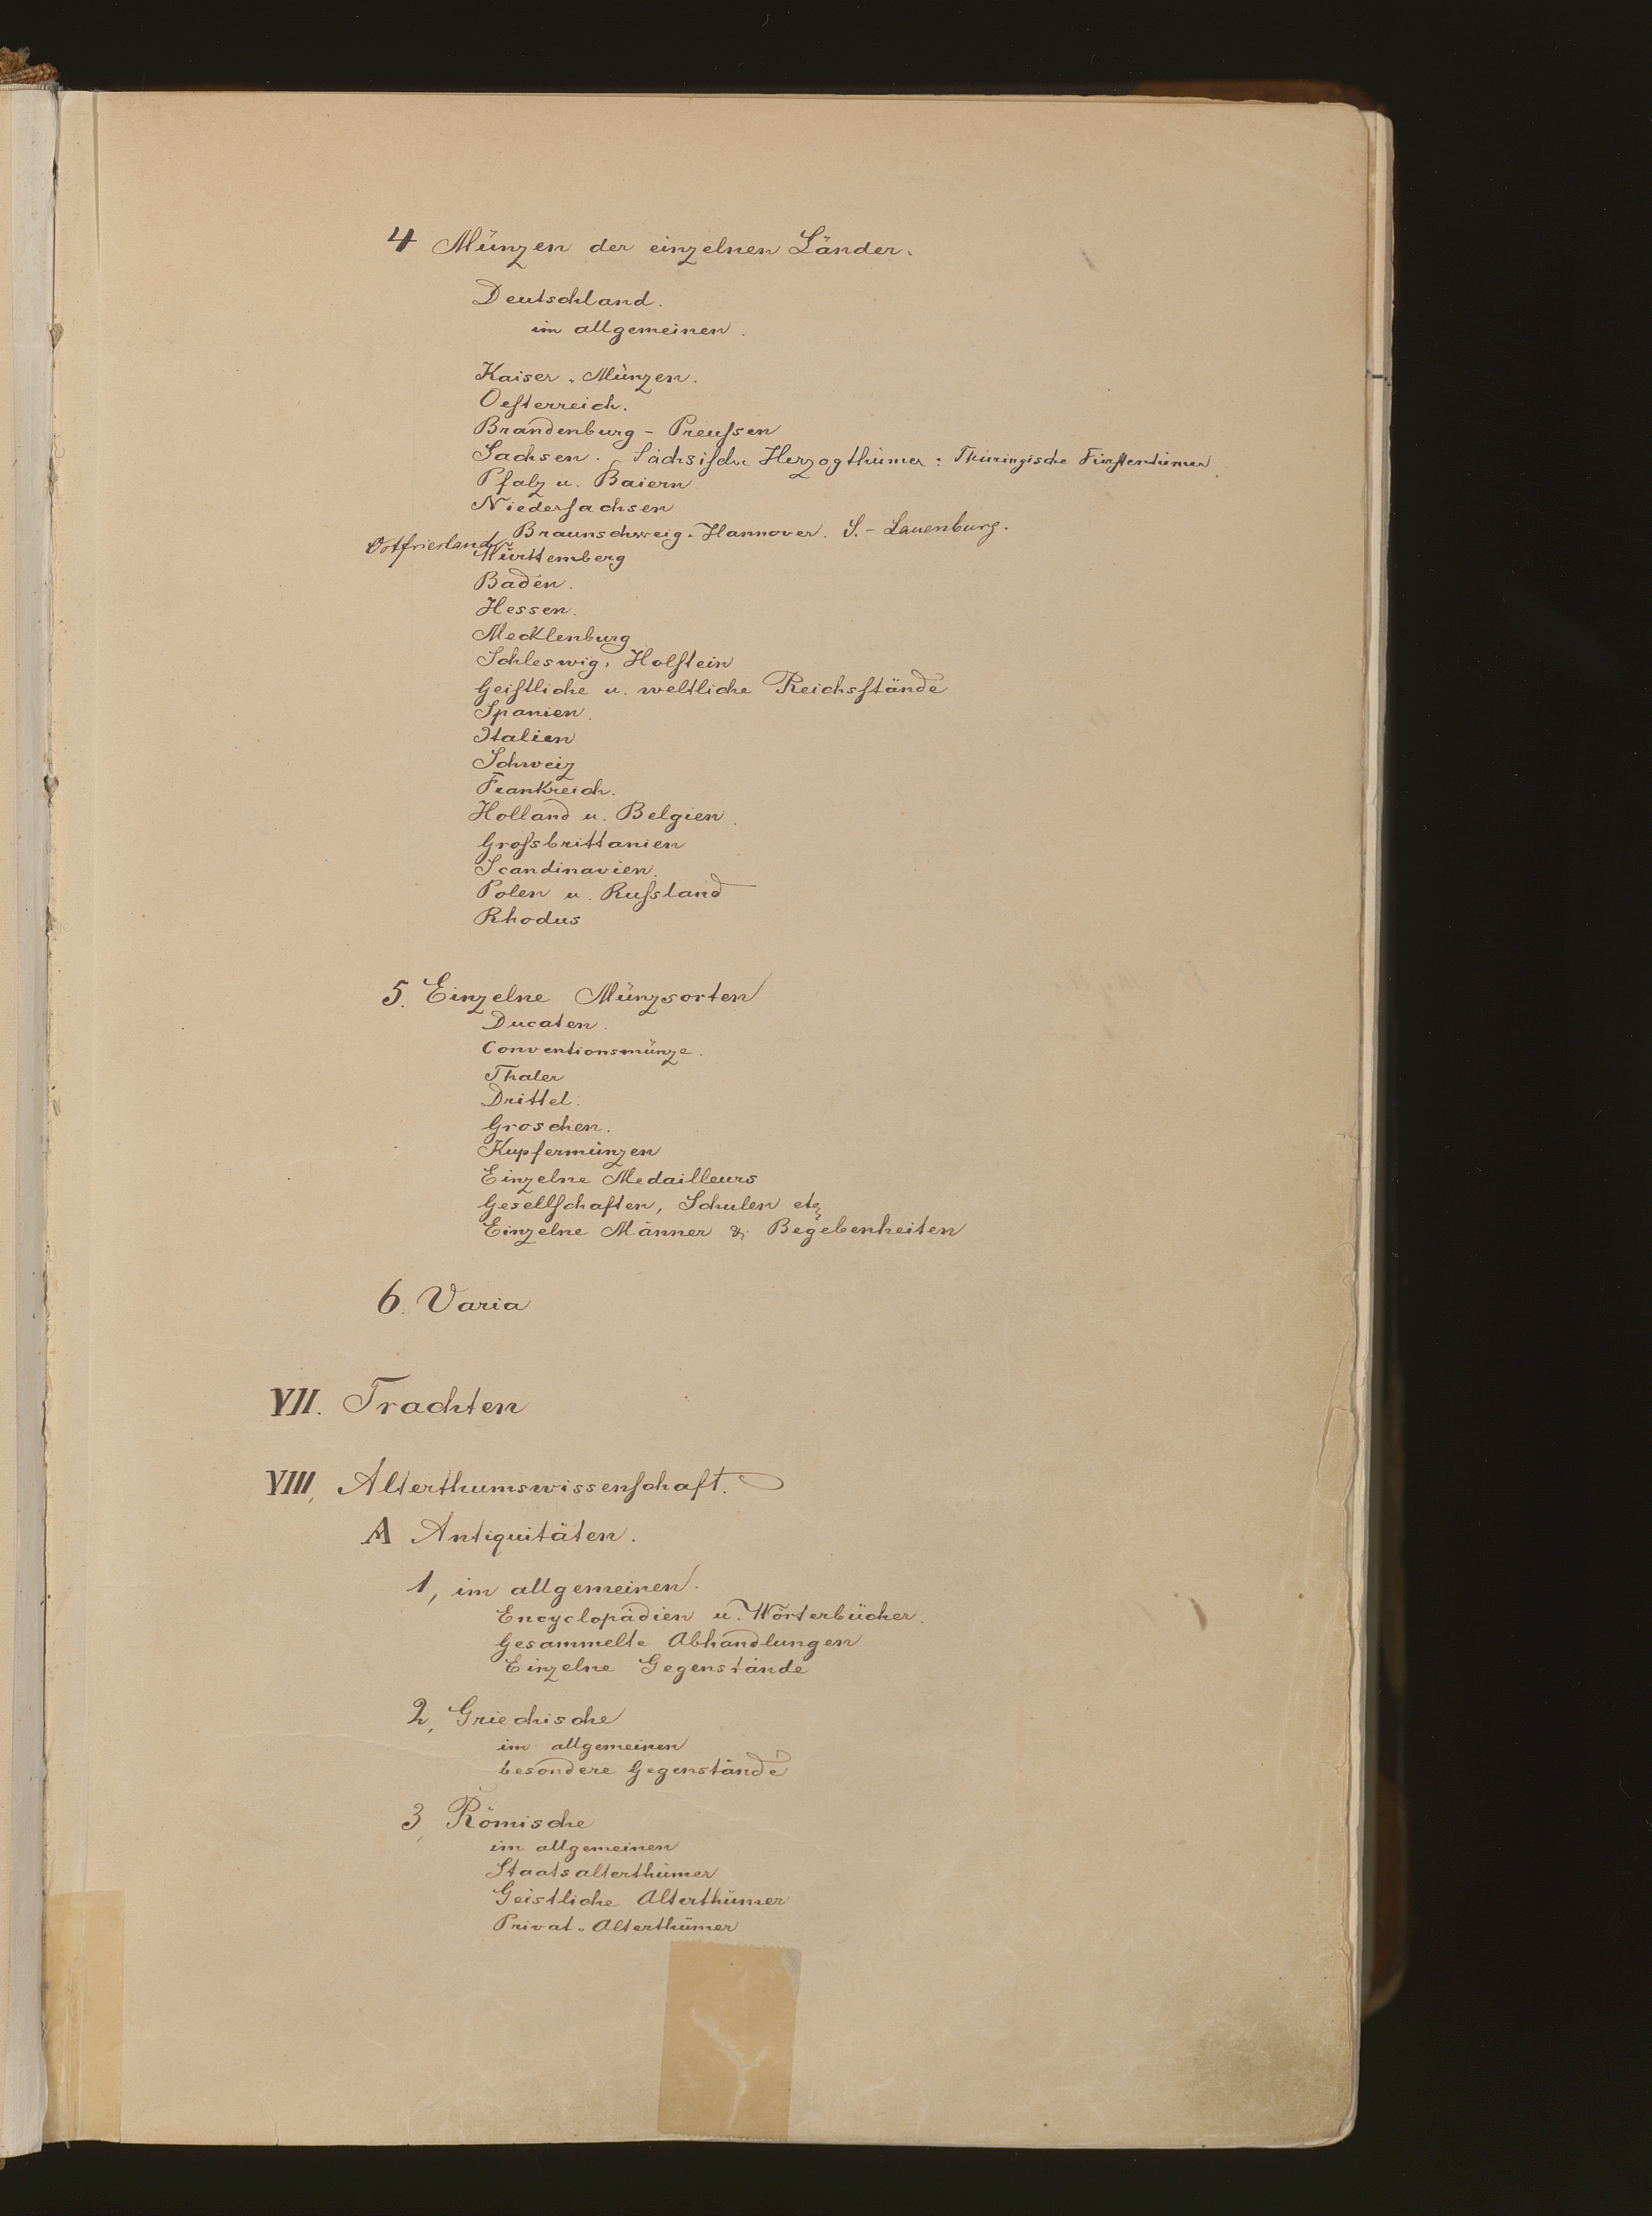 4 Münzen der einzelnen Länder.
Deutschland.
im allgemeinen.
Kaiser-Münzen.
Oeſterreich.
Brandenburg - Preuſsen
Sachsen. Sächsiſche Herzogthümer: Thüringische Fürſtentümer.
Pfalz u. Baiern
Niederſachsen
Braunschweig-Hannover. S.-Lauenburg.
Ostfriesland
Württemberg
Baden.
Hessen.
Mecklenburg
Schleswig, Holſtein
Geiſtliche u. weltliche Reichsſtände
Spanien.
Italien
Schweiz
Frankreich.
Holland u. Belgien.
Groſsbrittanien
Scandinavien.
Polen u. Ruſsland
Rhodus
5. Einzelne Münzsorten
Ducaten.
Conventionsmünze.
Thaler
Drittel.
Groschen.
Kupfermünzen
Einzelne Medailleurs
Geſellſchaften, Schulen etc
Einzelne Männer & Begebenheiten
6. Varia
VII. Trachten
VIII, Alterthumswissenſchaft.
A Antiquitäten.
1, im allgemeinen.
Encyclopädien u. Wörterbücher.
Gesammelte Abhandlungen
Einzelne Gegenstände
2, Griechische
im allgemeinen
besondere Gegenstände
3, Römische
im allgemeinen
Staatsalterthümer
Geistliche Alterthümer
Privat-Alterthümer